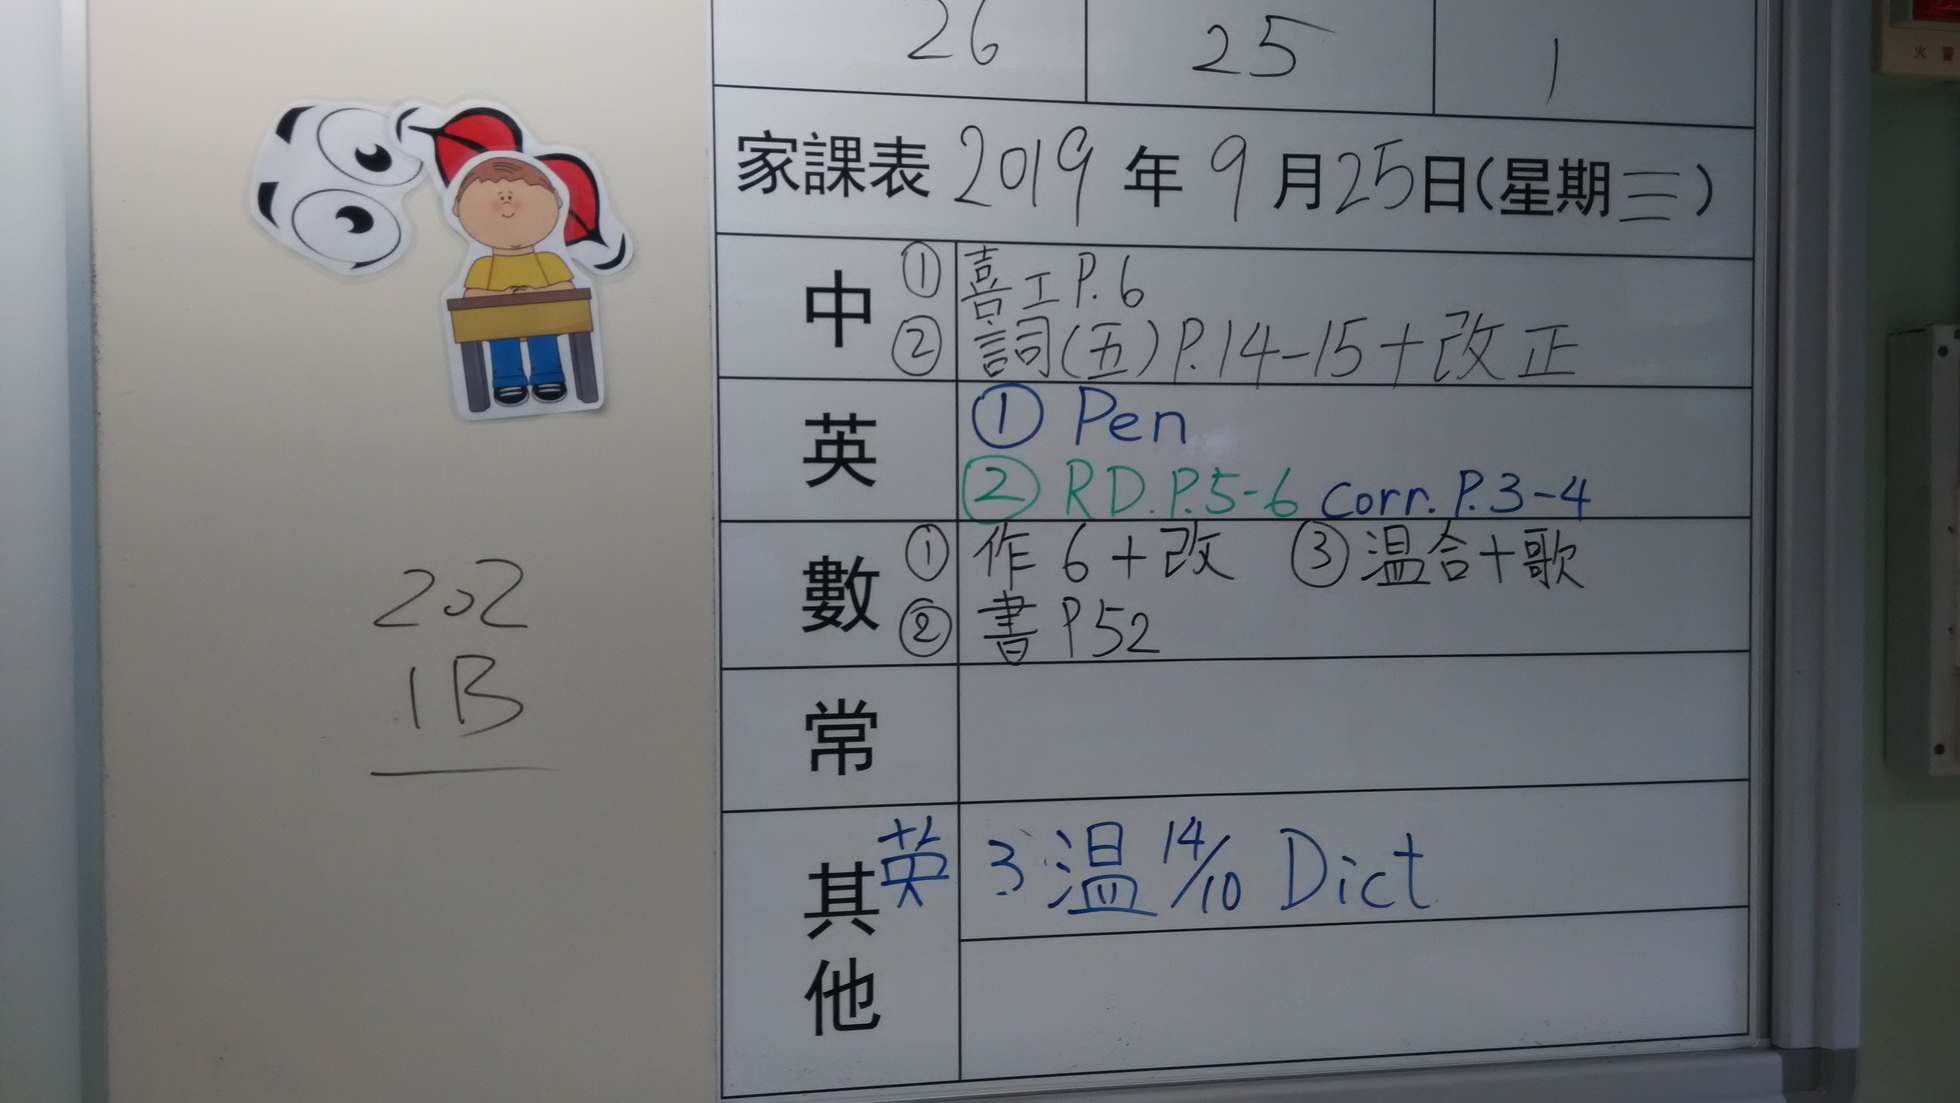 26 25 1
家課表 2019 年 9 月 25 日(星期三)
中 ① 喜工P.6
② 詞(五)P.14-15+改正
英 ① Pen
② RD.P.5-6 Corr.P.3-4
數 ① 作6+改 ③ 温合+歌
② 書P52
常
其他 英 3 温 14/10 Dict
202
1B
火